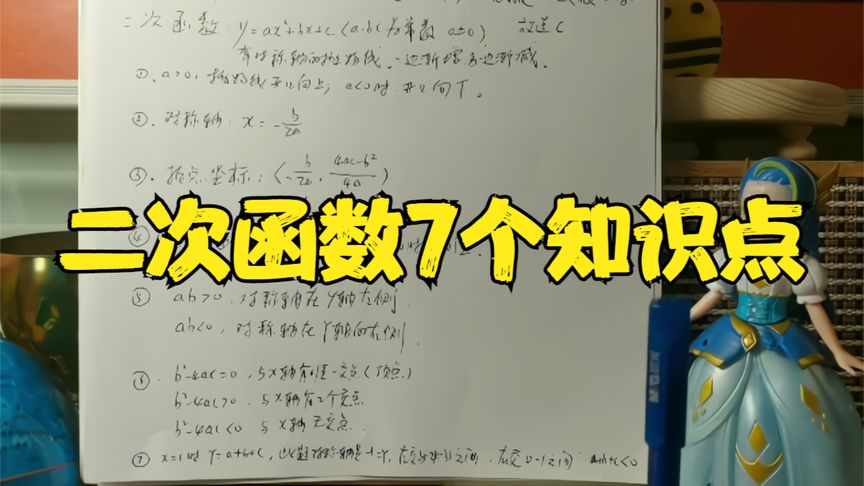 二次函数 y=ax²+bx+c (a.b.c为常数 a≠0) 故选C
有对称轴的抛物线.一边渐增另一边渐减.
①、a>0,抛物线开口向上; a<0时.开口向下。
②、对称轴: x=-b/2a
③、顶点坐标: (-b/2a, 4ac-b²/4a)
二次函数7个知识点
④
⑤ ab>0.对称轴在Y轴左侧.
ab<0,对称轴在Y轴的右侧.
⑥ b²-4ac=0.与x轴有唯一交点(顶点)
b²-4ac>0.与x轴有2个交点
b²-4ac<0 与x轴无交点.
⑦ x=1时 Y=a+b+c, 之间. 0-1之间 a+b+c<0